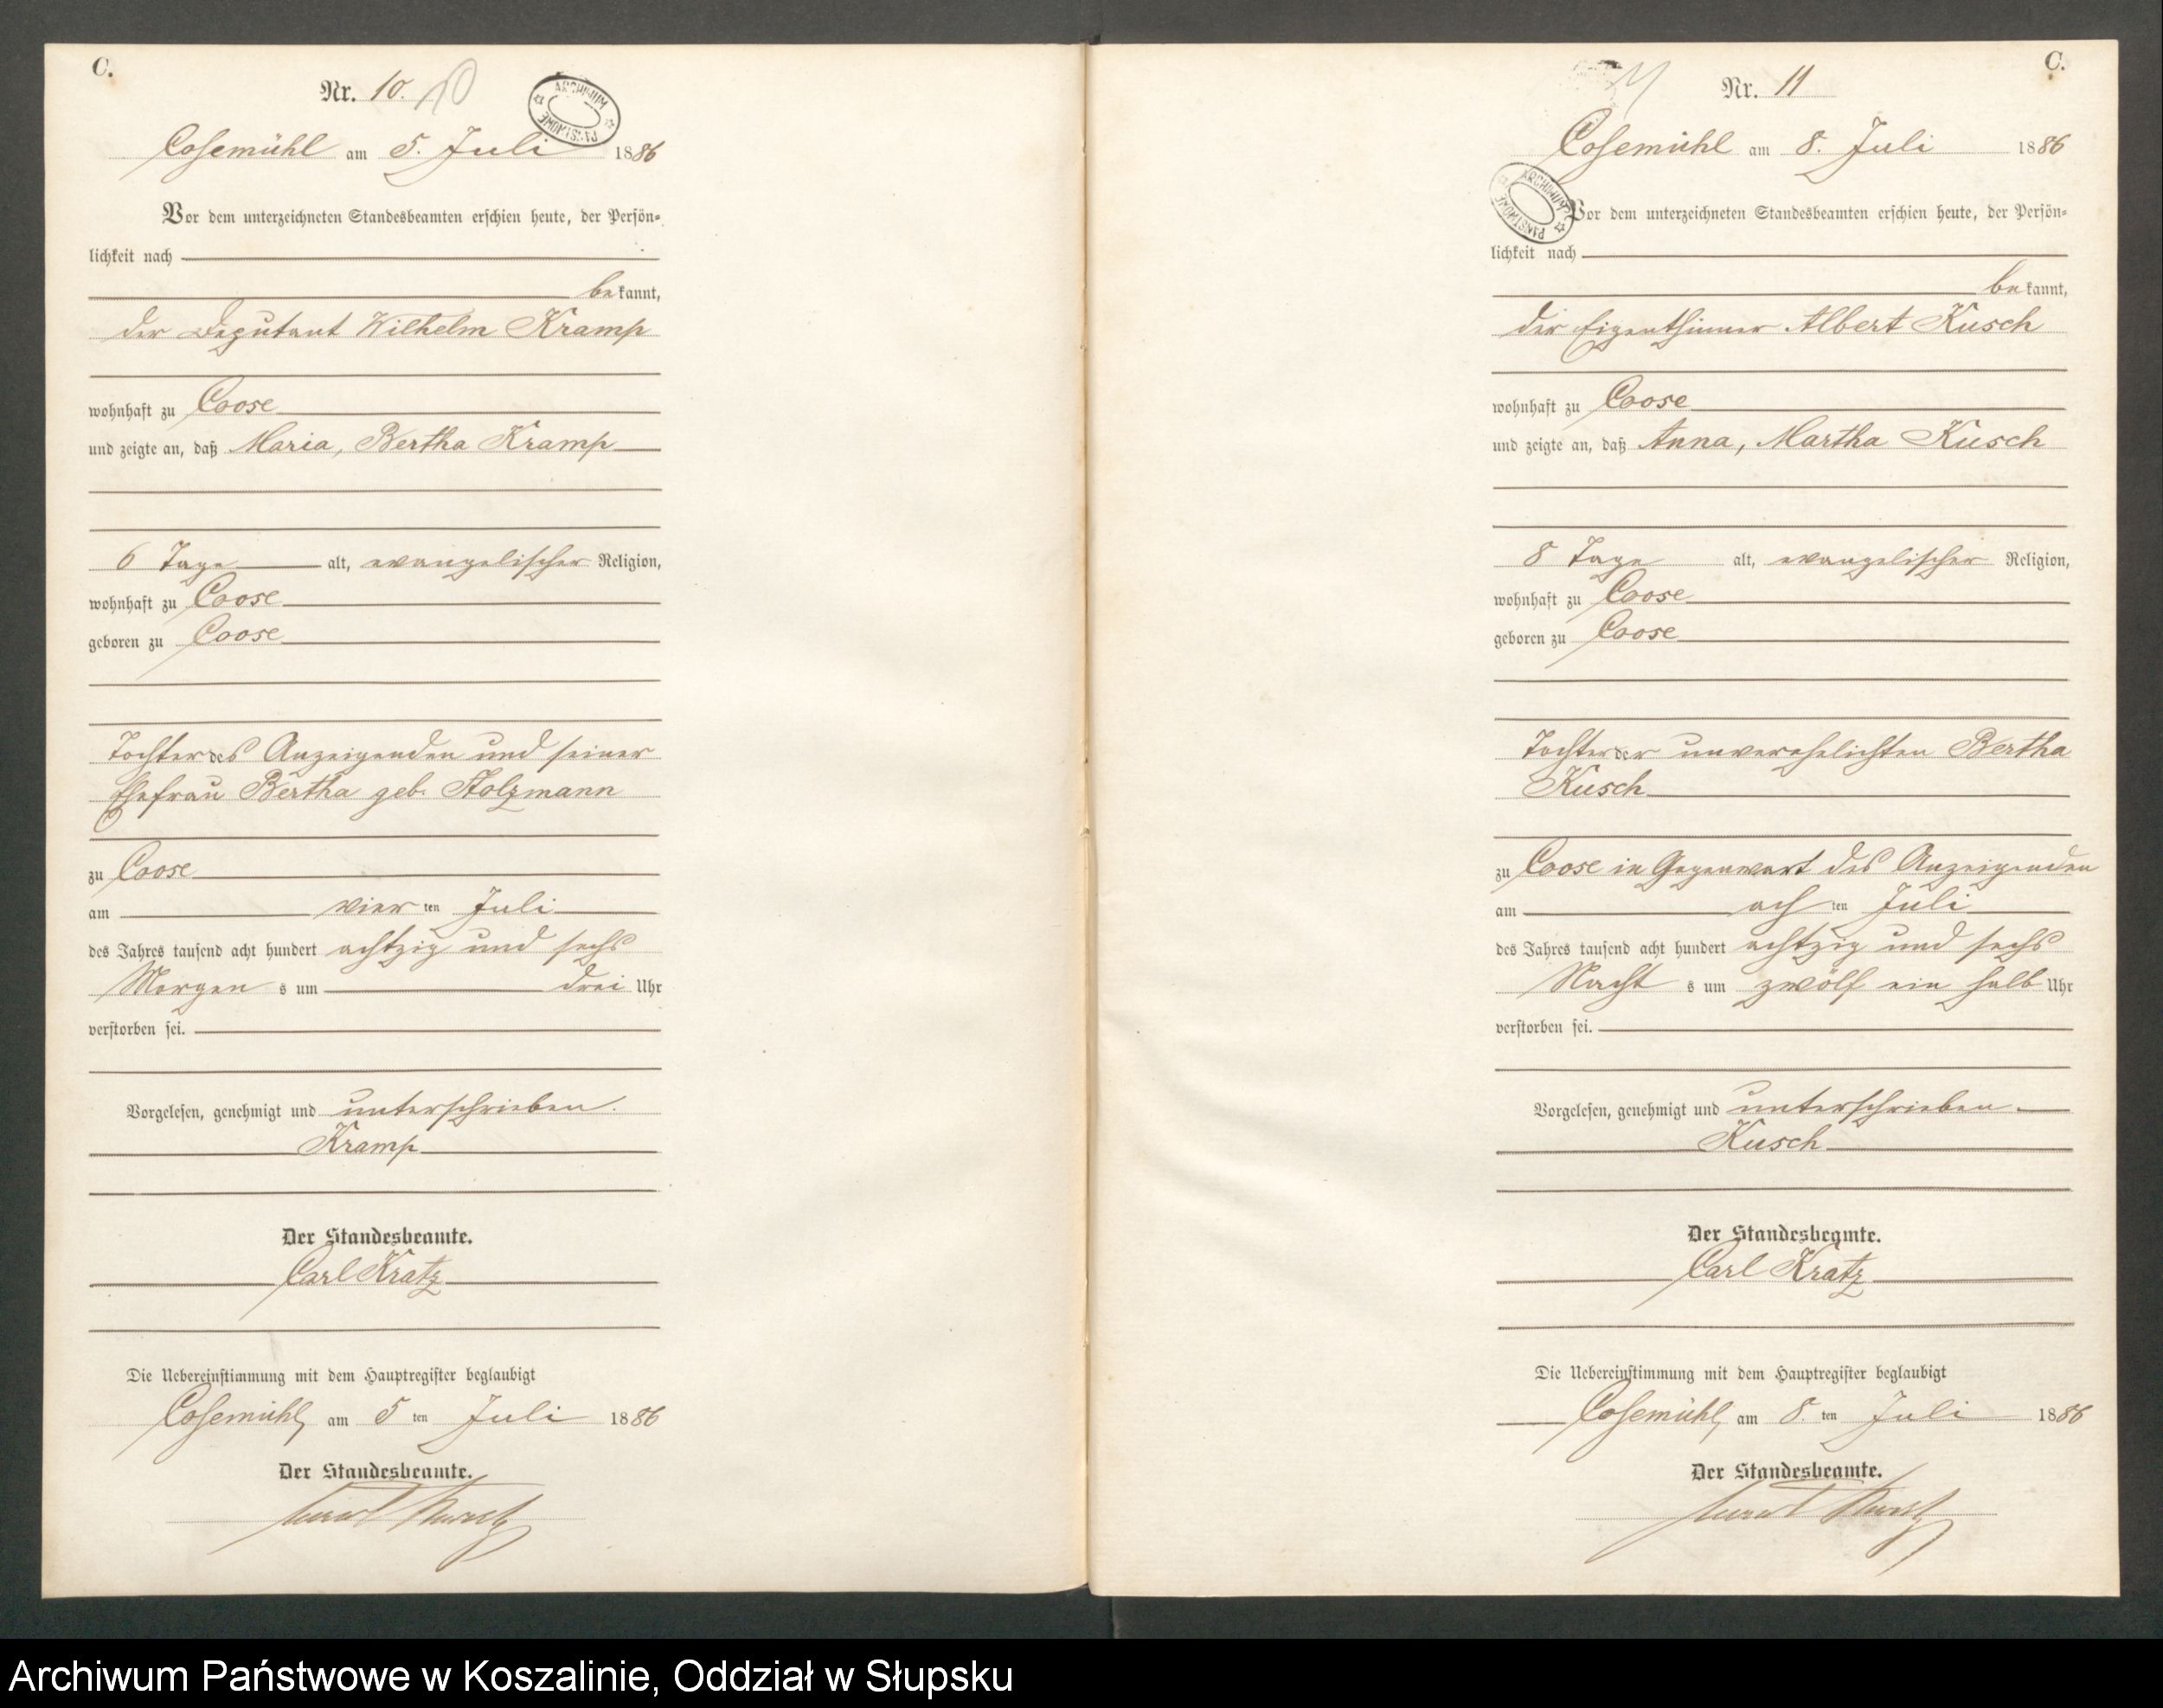 C.
Nr. 10. 10
ARCHIWUM
PAŃSTWOWE
Cosemühl am 5. Juli 1886
Vor dem unterzeichneten Standesbeamten erschien heute, der Persön-
lichkeit nach
bekannt,
der Deputant Wilhelm Kramp
wohnhaft zu Coose
und zeigte an, daß Maria, Bertha Kramp
6 Tage alt, evangelischer Religion,
wohnhaft zu Coose
geboren zu Coose
Tochter des Anzeigenden und seiner
Ehefrau Bertha geb. Stolzmann
zu Coose
am vier ten Juli
des Jahres tausend acht hundert achtzig und sechs
Morgen s um drei Uhr
verstorben sei.
Vorgelesen, genehmigt und unterschrieben.
Kramp
Der Standesbeamte.
Carl Kratz
Die Uebereinstimmung mit dem Hauptregister beglaubigt
Cosemühl, am 5 ten Juli 1886
Der Standesbeamte.
Carl Kratz
C.
11 Nr. 11
Cosemühl am 8. Juli 1886
ARCHIWUM
PAŃSTWOWE
Vor dem unterzeichneten Standesbeamten erschien heute, der Persön-
lichkeit nach
bekannt,
der Eigenthümer Albert Kusch
wohnhaft zu Coose
und zeigte an, daß Anna, Martha Kusch
8 Tage alt, evangelischer Religion,
wohnhaft zu Coose
geboren zu Coose
Tochter der unverehelichten Bertha
Kusch
zu Coose in Gegenwart des Anzeigenden
am ach ten Juli
des Jahres tausend acht hundert achtzig und sechs
Nacht s um zwölf ein halb Uhr
verstorben sei.
Vorgelesen, genehmigt und unterschrieben.
Kusch
Der Standesbeamte.
Carl Kratz
Die Uebereinstimmung mit dem Hauptregister beglaubigt
Cosemühl, am 8. ten Juli 1886
Der Standesbeamte.
Carl Kratz
Archiwum Państwowe w Koszalinie, Oddział w Słupsku